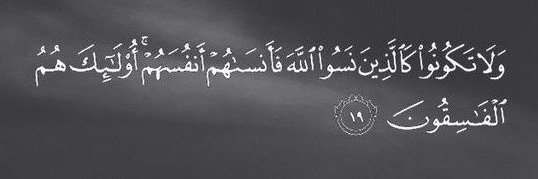 وَلَا تَكُونُوا۟ كَٱلَّذِينَ نَسُوا۟ ٱللَّهَ فَأَنسَىٰهُمْ أَنفُسَهُمْ ۚ أُو۟لَـٰٓئِكَ هُمُ
ٱلْفَـٰسِقُونَ ١٩